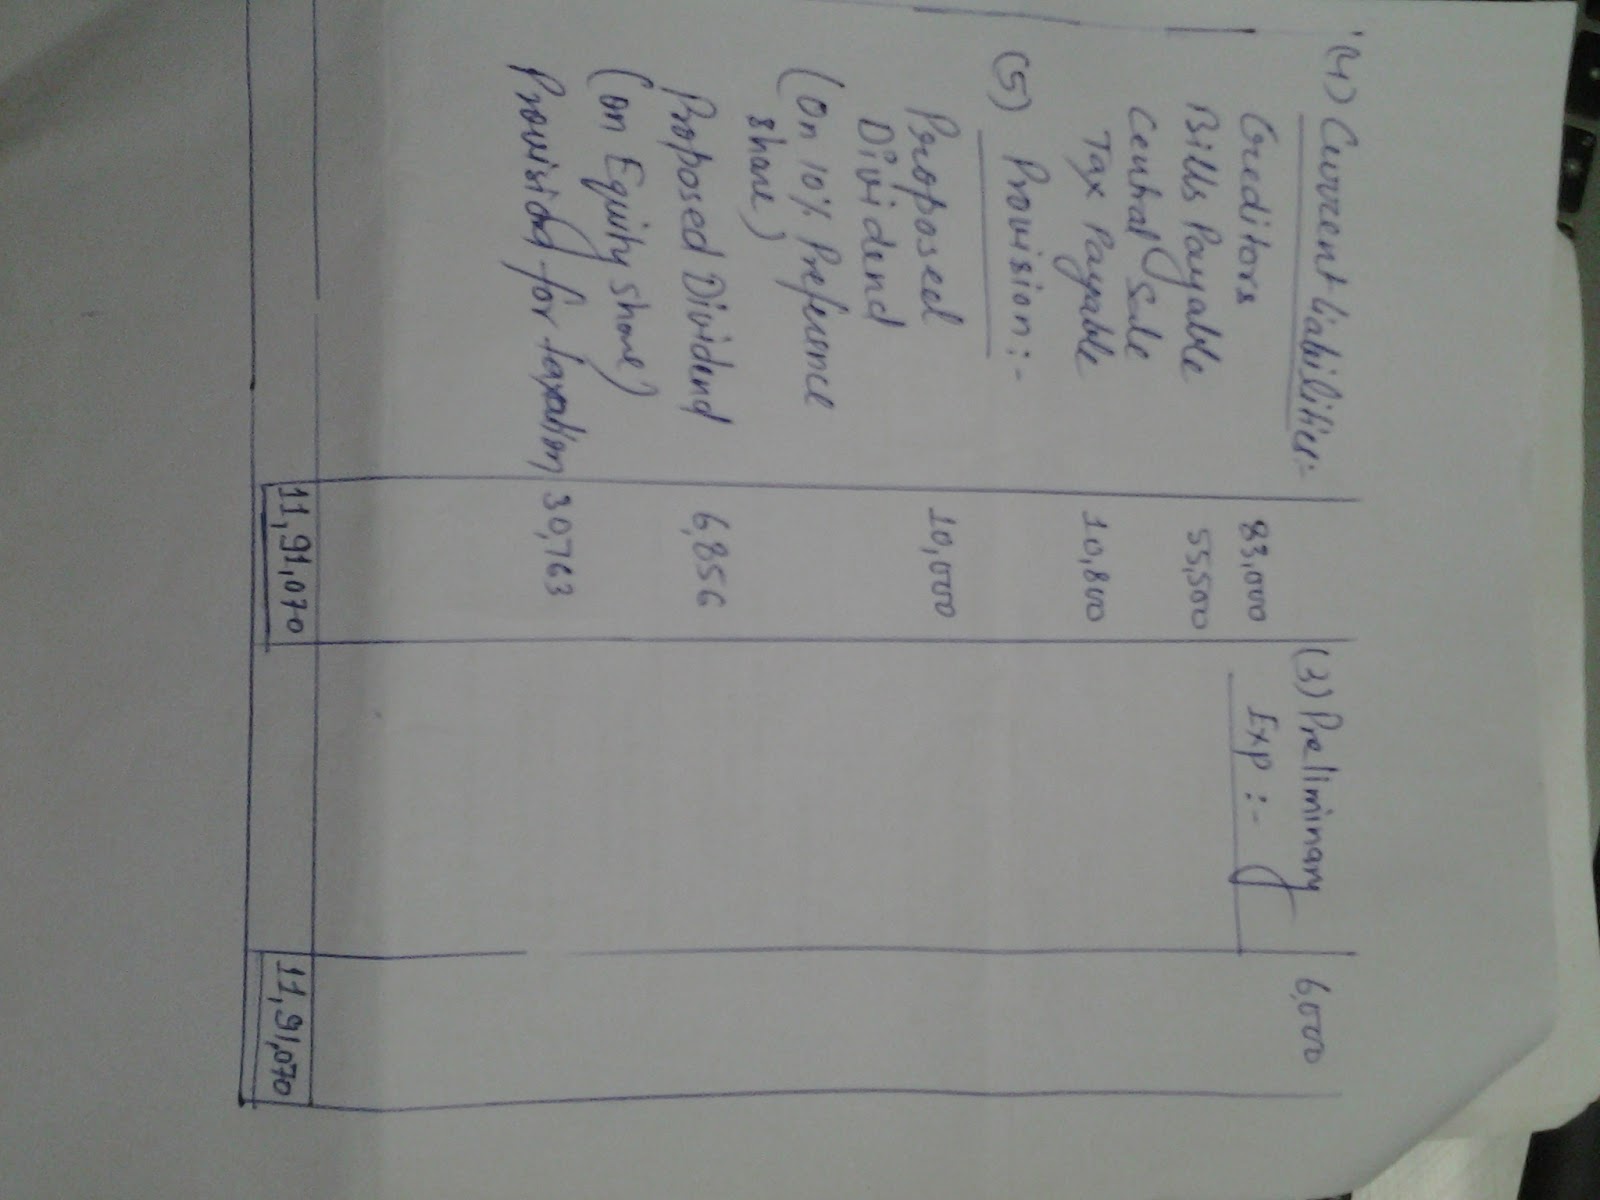 (4) Current liabilities:-
Creditors 83,000
Bills Payable 55,500
Central Sale
Tax Payable 10,800
(5) Provision:-
Proposed 10,000
Dividend
(On 10% Preference
share)
Proposed Dividend 6,856
(on Equity share)
Provision for taxation 30,763
11,91,070
(3) Preliminary 6,000
Exp :-
11,91,070